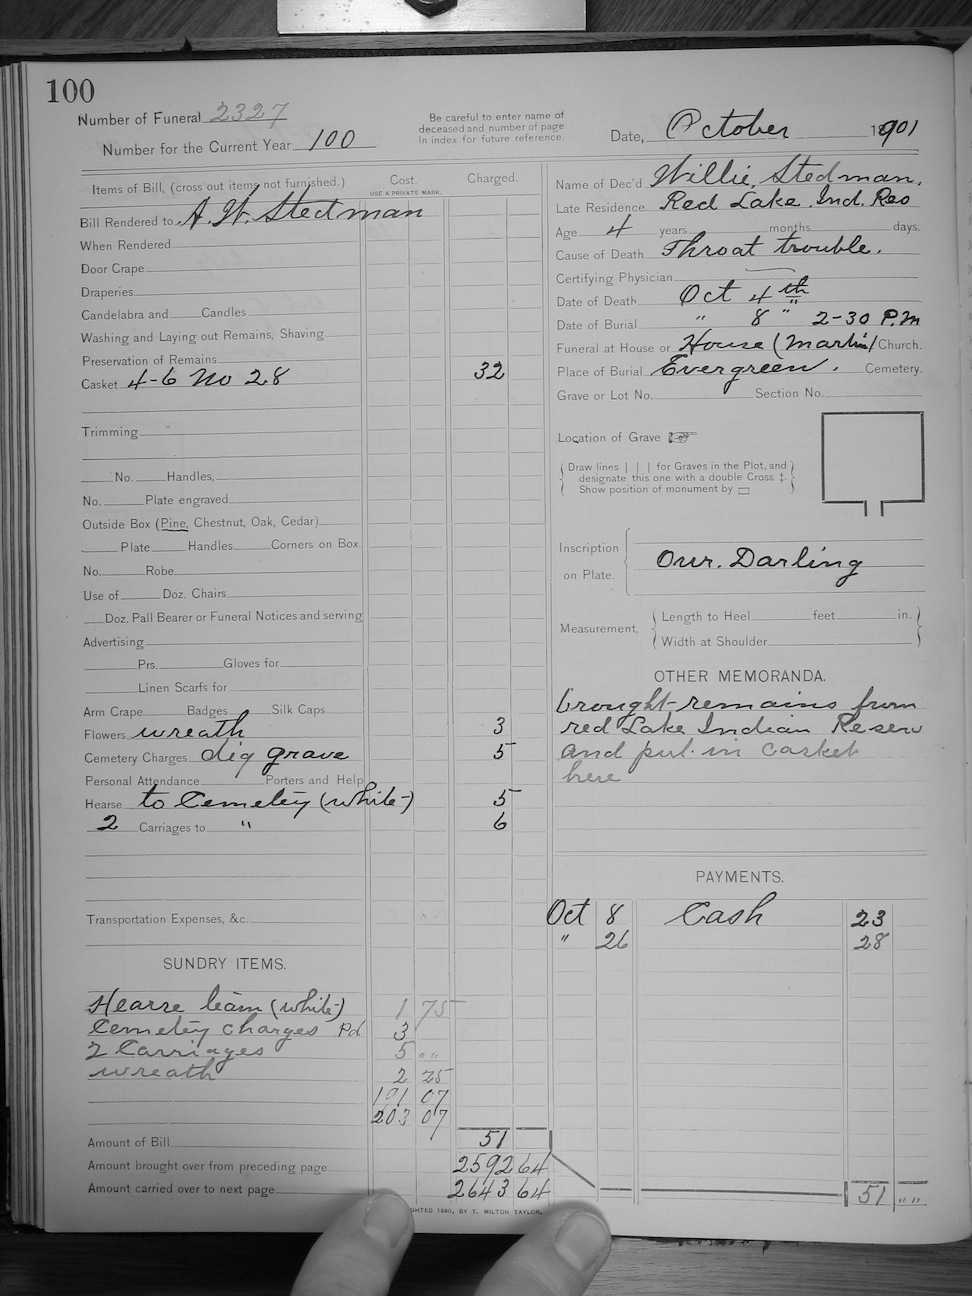 100
Number of Funeral 2327
Number for the Current Year 100
Be careful to enter name of
deceased and number of page
in index for future reference.
Date, October 1901
Items of Bill, (cross out items not furnished.) Cost. Charged.
USE A PRIVATE MARK.
Bill Rendered to A. W. Stedman
When Rendered
Door Crape
Draperies
Candelabra and Candles
Washing and Laying out Remains, Shaving
Preservation of Remains
Casket 4-6 No 28 32
Trimming
No. Handles,
No. Plate engraved
Outside Box (Pine, Chestnut, Oak, Cedar)
Plate Handles Corners on Box
No. Robe
Use of Doz. Chairs
Doz. Pall Bearer or Funeral Notices and serving
Advertising
Prs. Gloves for
Linen Scarfs for
Arm Crape Badges Silk Caps
Flowers wreath 3
Cemetery Charges dig grave 5
Personal Attendance Porters and Help
Hearse to Cemetery (white) 5
2 Carriages to " 6
Transportation Expenses, &c.
SUNDRY ITEMS.
Hearse team (white) 1 75
Cemetery charges Pd 3
2 Carriages 5 " "
wreath 2 25
191 07
203 07
Amount of Bill 51
Amount brought over from preceding page 2592 64
Amount carried over to next page 2643 64
Name of Dec'd Willie Stedman.
Late Residence Red Lake Ind. Res
Age 4 years months days.
Cause of Death Throat trouble.
Certifying Physician
Date of Death Oct 4th
Date of Burial " 8 " 2-30 P.M
Funeral at House or House (Martin) Church.
Place of Burial Evergreen. Cemetery
Grave or Lot No. Section No.
Location of Grave
Draw lines | | | for Graves in the Plot, and
designate this one with a double Cross ‡.
Show position of monument by ▭
Inscription
on Plate.
Our. Darling
Measurement,
Length to Heel feet in.
Width at Shoulder
OTHER MEMORANDA.
brought remains from
red Lake Indian Reserv
and put in casket
here
PAYMENTS.
Oct 8 Cash 23
" 26 28
51 " "
GHTED 1890, BY T. MILTON TAYLOR.